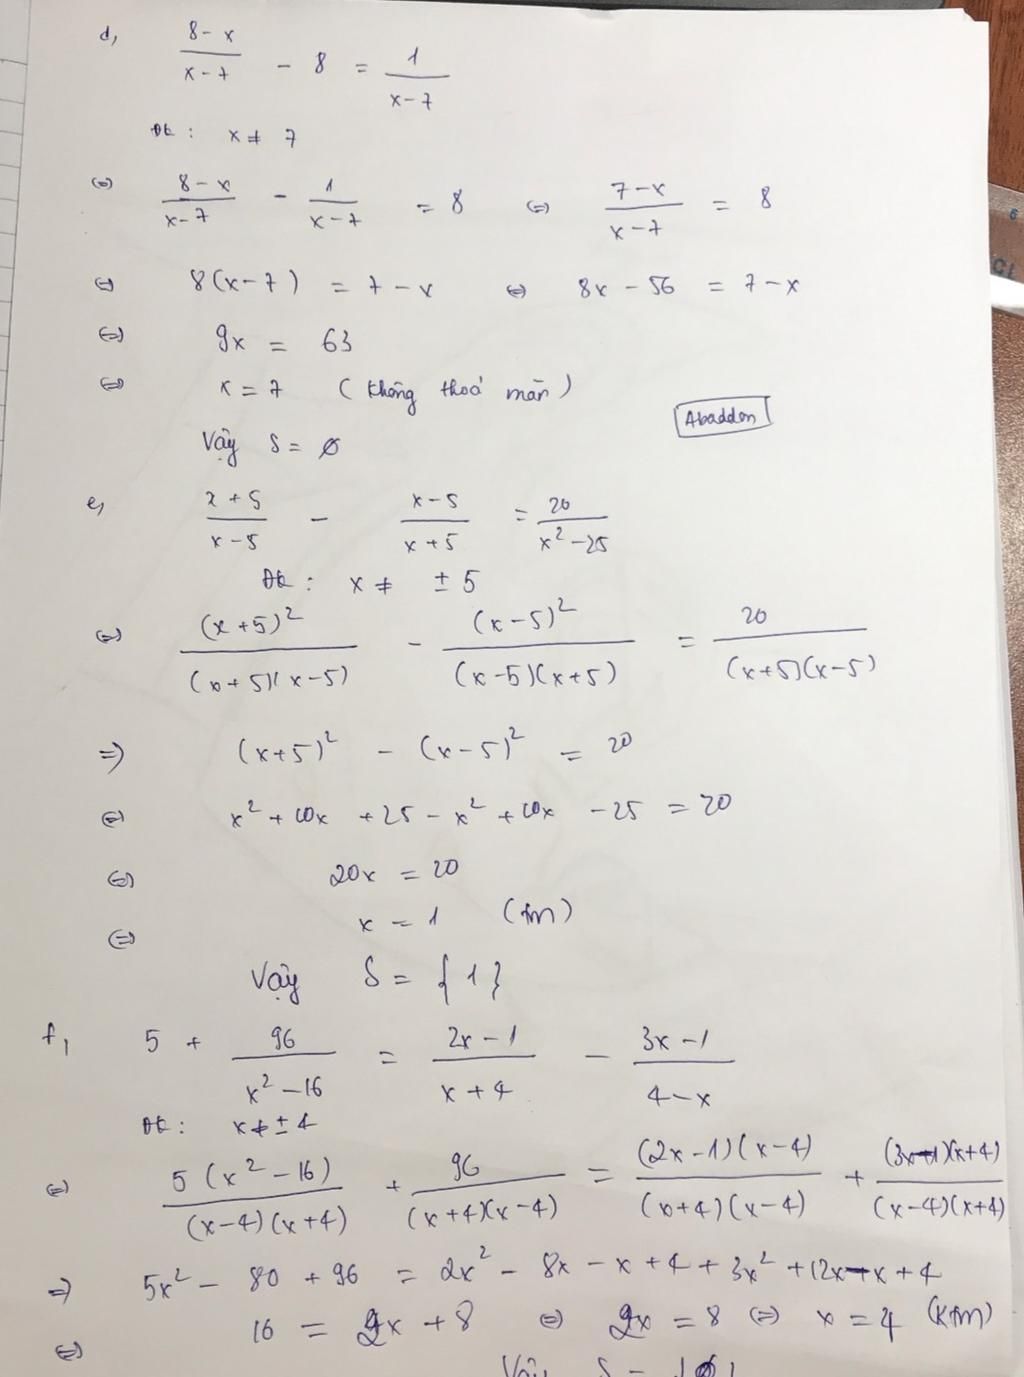 d, (8-x)/(x-7) - 8 = 1/(x-7)
Đk : x ≠ 7
(=) (8-x)/(x-7) - 1/(x-7) = 8 (=) (7-x)/(x-7) = 8
(=) 8(x-7) = 7-x (=) 8x - 56 = 7-x
(=) 9x = 63
(=) x = 7 (không thoả mãn)
Abaddon
Vậy S = ∅
e, (x+5)/(x-5) - (x-5)/(x+5) = 20/(x²-25)
Đk : x ≠ ± 5
(=) (x+5)²/((x+5)(x-5)) - (x-5)²/((x-5)(x+5)) = 20/((x+5)(x-5))
=) (x+5)² - (x-5)² = 20
(=) x² + 10x + 25 - x² + 10x - 25 = 20
(=) 20x = 20
(=) x = 1 (tm)
Vậy S = {1}
f, 5 + 96/(x²-16) = (2x-1)/(x+4) - (3x-1)/(4-x)
Đk : x ≠ ± 4
(=) 5(x²-16)/((x-4)(x+4)) + 96/((x+4)(x-4)) = (2x-1)(x-4)/((x+4)(x-4)) + (3x-1)(x+4)/((x-4)(x+4))
=) 5x² - 80 + 96 = 2x² - 8x - x + 4 + 3x² + 12x - x + 4
(=) 16 = 2x + 8 (=) 2x = 8 (=) x = 4 (ktm)
Vậy S =